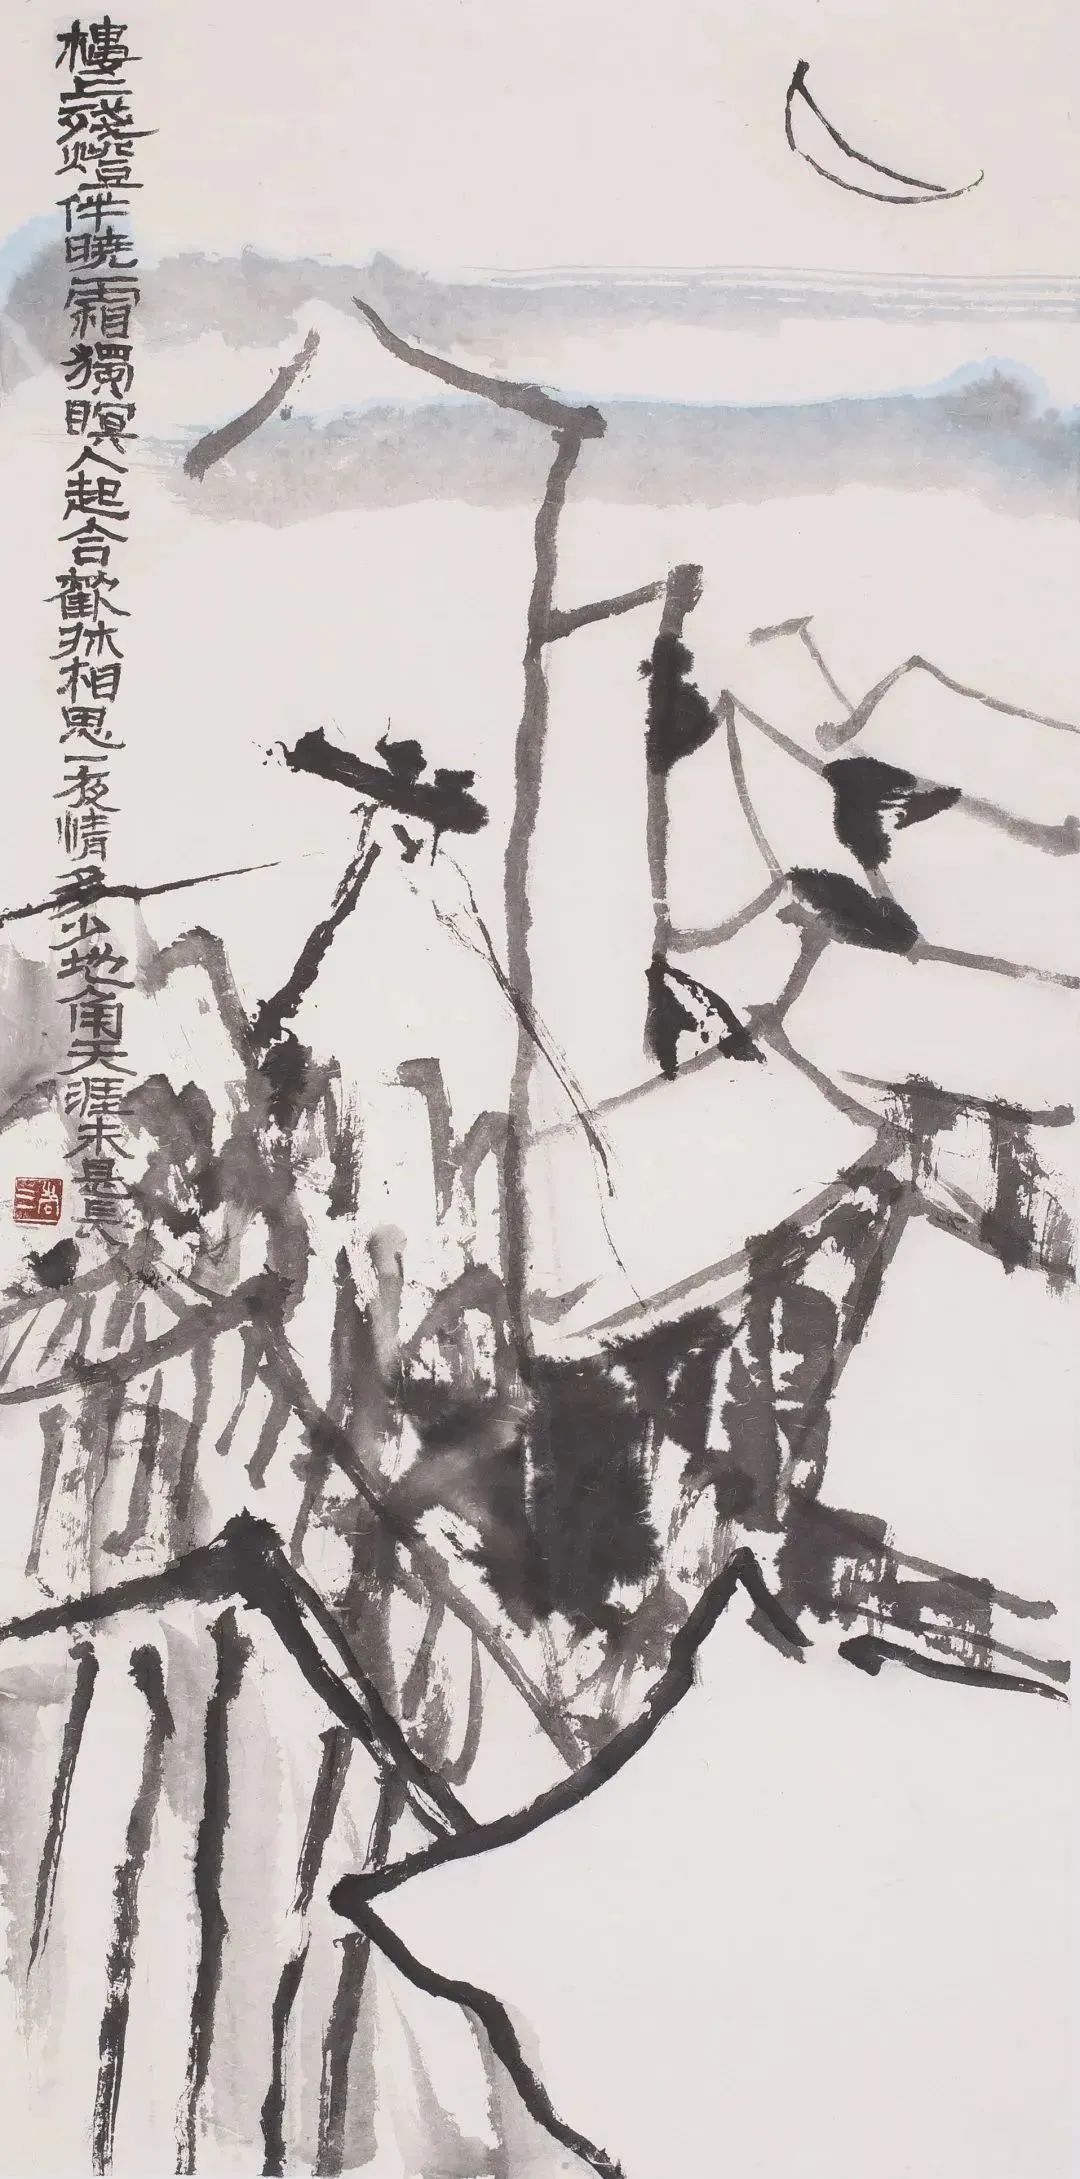 樓上殘燈伴曉霜獨瞑人起合歡牀相思一夜情多少地角天涯未是長